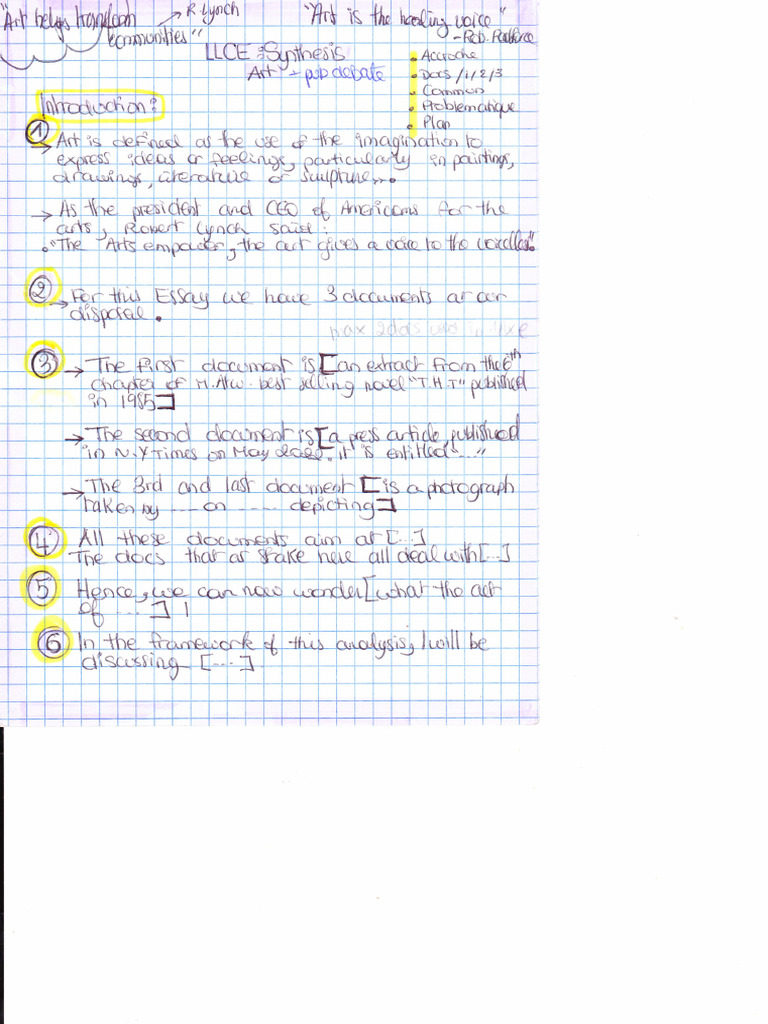 "Art helps transform communities" → R. Lynch
"Art is the healing voice"
- Rob. Redford
LLCE : Synthesis
Art - pop debate
• Accroche
• Docs /1/2/3
• Common
• Problematique
• Plan
Introduction :
1
→ Art is defined as the use of the imagination to
express ideas or feelings, particularly in paintings,
drawings, literature or sculpture...
→ As the president and CEO of Americans for the
arts, Robert Lynch said :
• "The Arts empower, the art gives a voice to the voiceless"
2
→ For this Essay we have 3 documents at our
disposal.
3
→ The first document is [an extract from the 6th
chapter of M. Atw. best selling novel "T.H.T" published
in 1985]
→ The second document is [a press article, published
in N.Y Times on May
it is entitled ..."
→ The 3rd and last document [is a photograph
taken by ---- on ---- depicting]
4 All these documents aim at [...]
The docs that at stake here all deal with [...]
5 Hence, we can now wonder [what the art
of .... ] !
6 In the framework of this analysis, I will be
discussing [....]